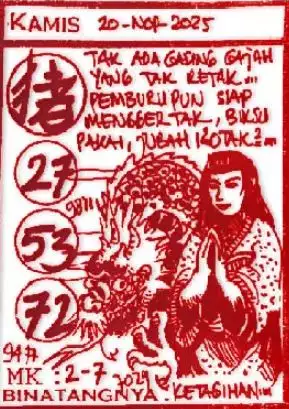 KAMIS 20-NOP-2025
猪
TAK ADA GADING GAJAH
YANG TAK RETAK...
PEMBURUPUN SIAP
MENGGERTAK, BIKSU
PAKAI, JUBAH KOTAK2...
27
53
72
MK : 2-7
BINATANGNYA KETAGIHAN...